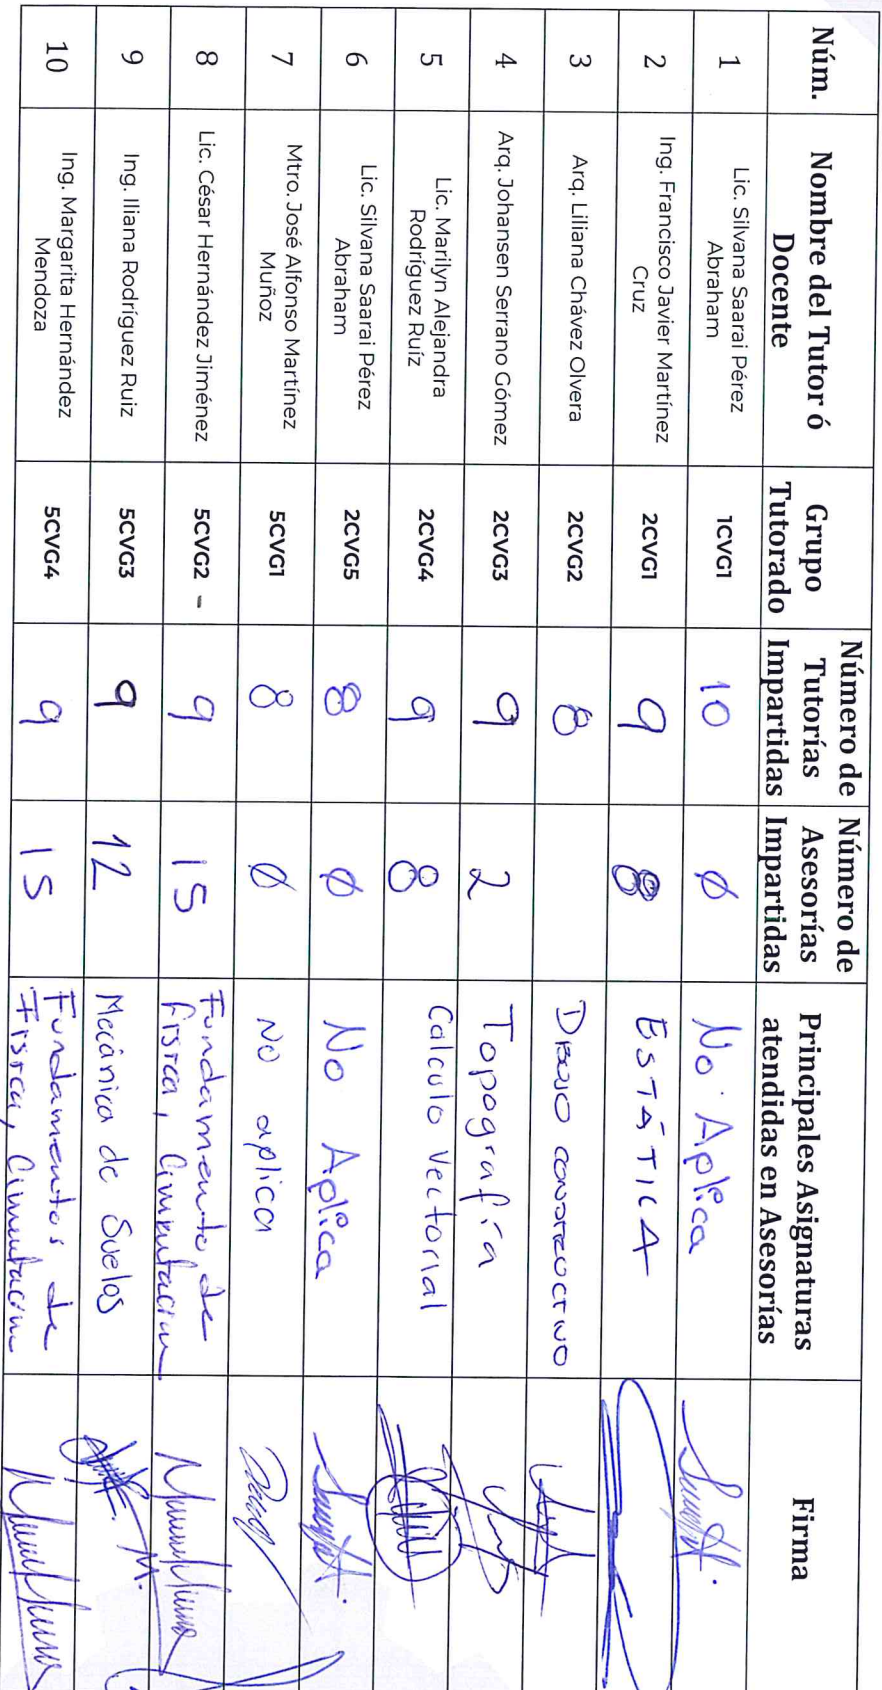 Núm.
Nombre del Tutor ó
Docente
Grupo
Tutorado
Número de
Tutorías
Impartidas
Número de
Asesorías
Impartidas
Principales Asignaturas
atendidas en Asesorías
Firma
1
Lic. Silvana Saarai Pérez
Abraham
1CVG1
10
Ø
No Aplica
2
Ing. Francisco Javier Martínez
Cruz
2CVG1
9
8
ESTÁTICA
3
Arq. Liliana Chávez Olvera
2CVG2
8
DIBUJO CONSTRUCTIVO
4
Arq. Johansen Serrano Gómez
2CVG3
9
2
Topografía
5
Lic. Marilyn Alejandra
Rodríguez Ruíz
2CVG4
9
8
Calculo Vectorial
6
Lic. Silvana Saarai Pérez
Abraham
2CVG5
8
Ø
No Aplica
7
Mtro. José Alfonso Martínez
Muñoz
5CVG1
8
Ø
No aplica
8
Lic. César Hernández Jiménez
5CVG2 -
9
15
Fundamento de
física, Cimentacion
9
Ing. Iliana Rodríguez Ruiz
5CVG3
9
12
Mecánica de Suelos
10
Ing. Margarita Hernández
Mendoza
5CVG4
9
15
Fundamentos de
Física, Cimentacion